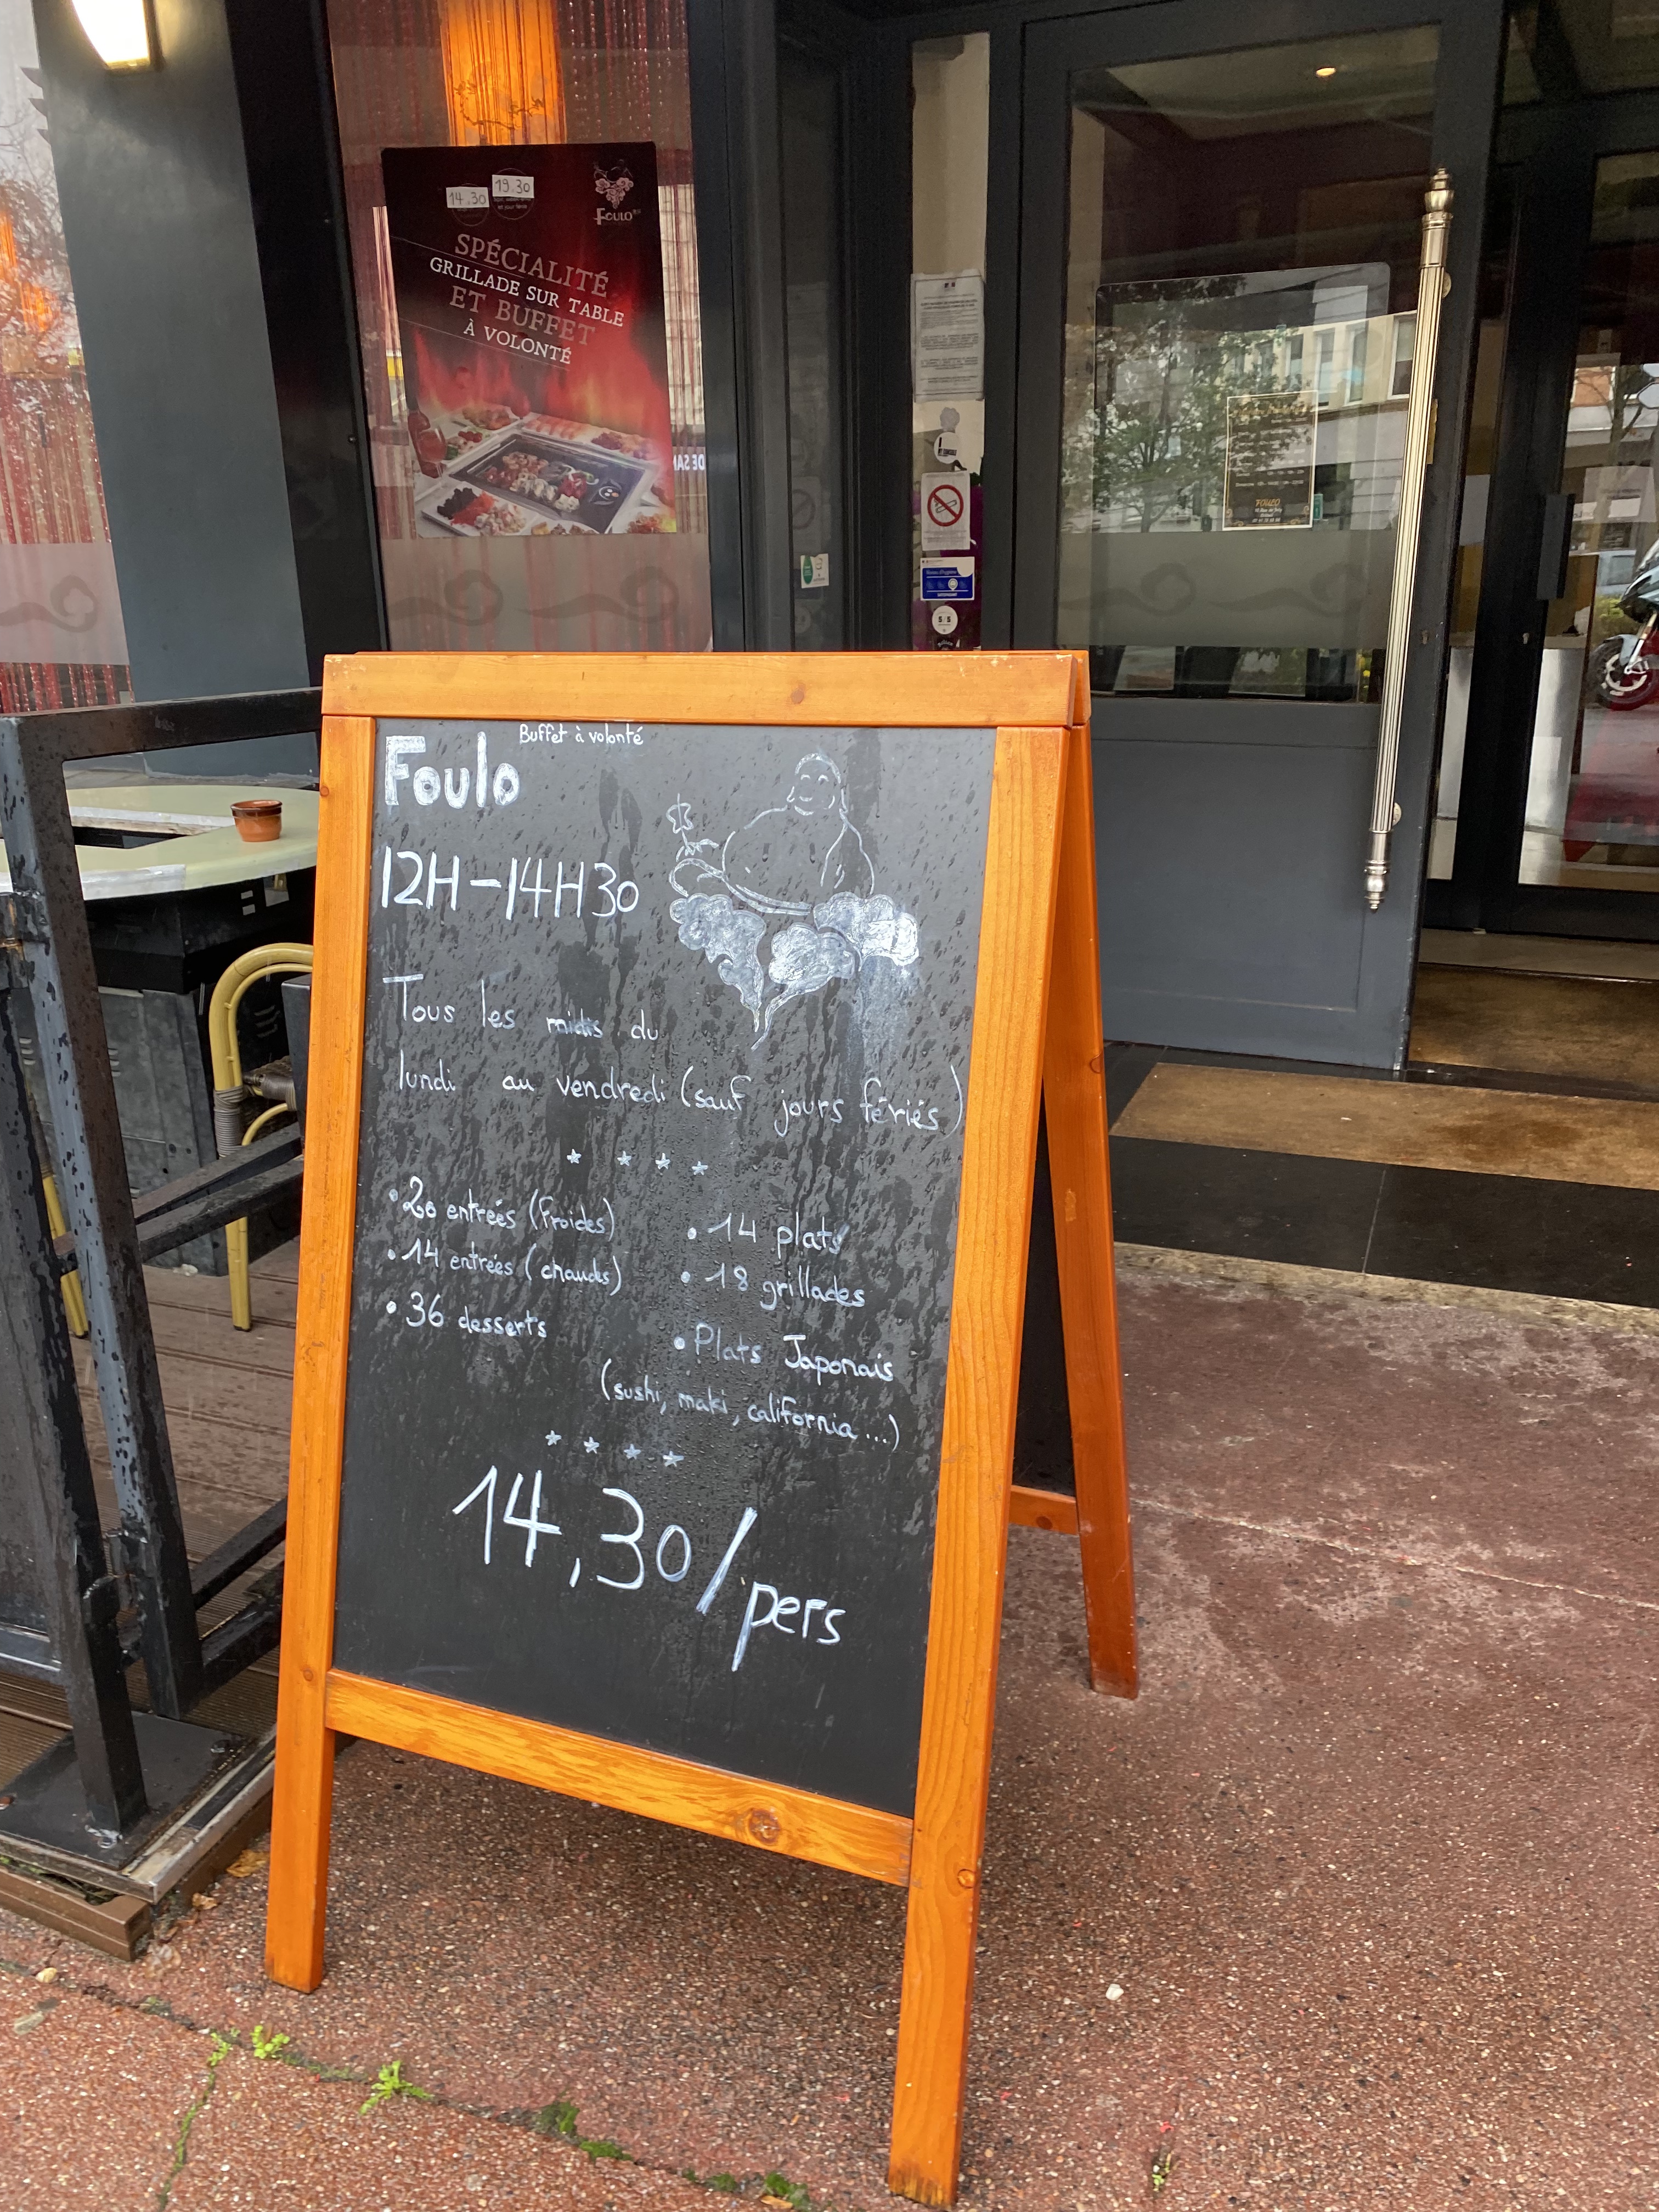 14.30
19.30
et jour férié
FOULO
SPÉCIALITÉ
GRILLADE SUR TABLE
ET BUFFET
À VOLONTÉ
FOULO
Buffet à volonté
Foulo
12H-14H30
Tous les midis du
lundi au vendredi (sauf jours fériés)
• 20 entrées (froides)
• 14 entrées (chaudes)
• 36 desserts
• 14 plats
• 18 grillades
• Plats Japonais
(sushi, maki, california ...)
14,30/pers